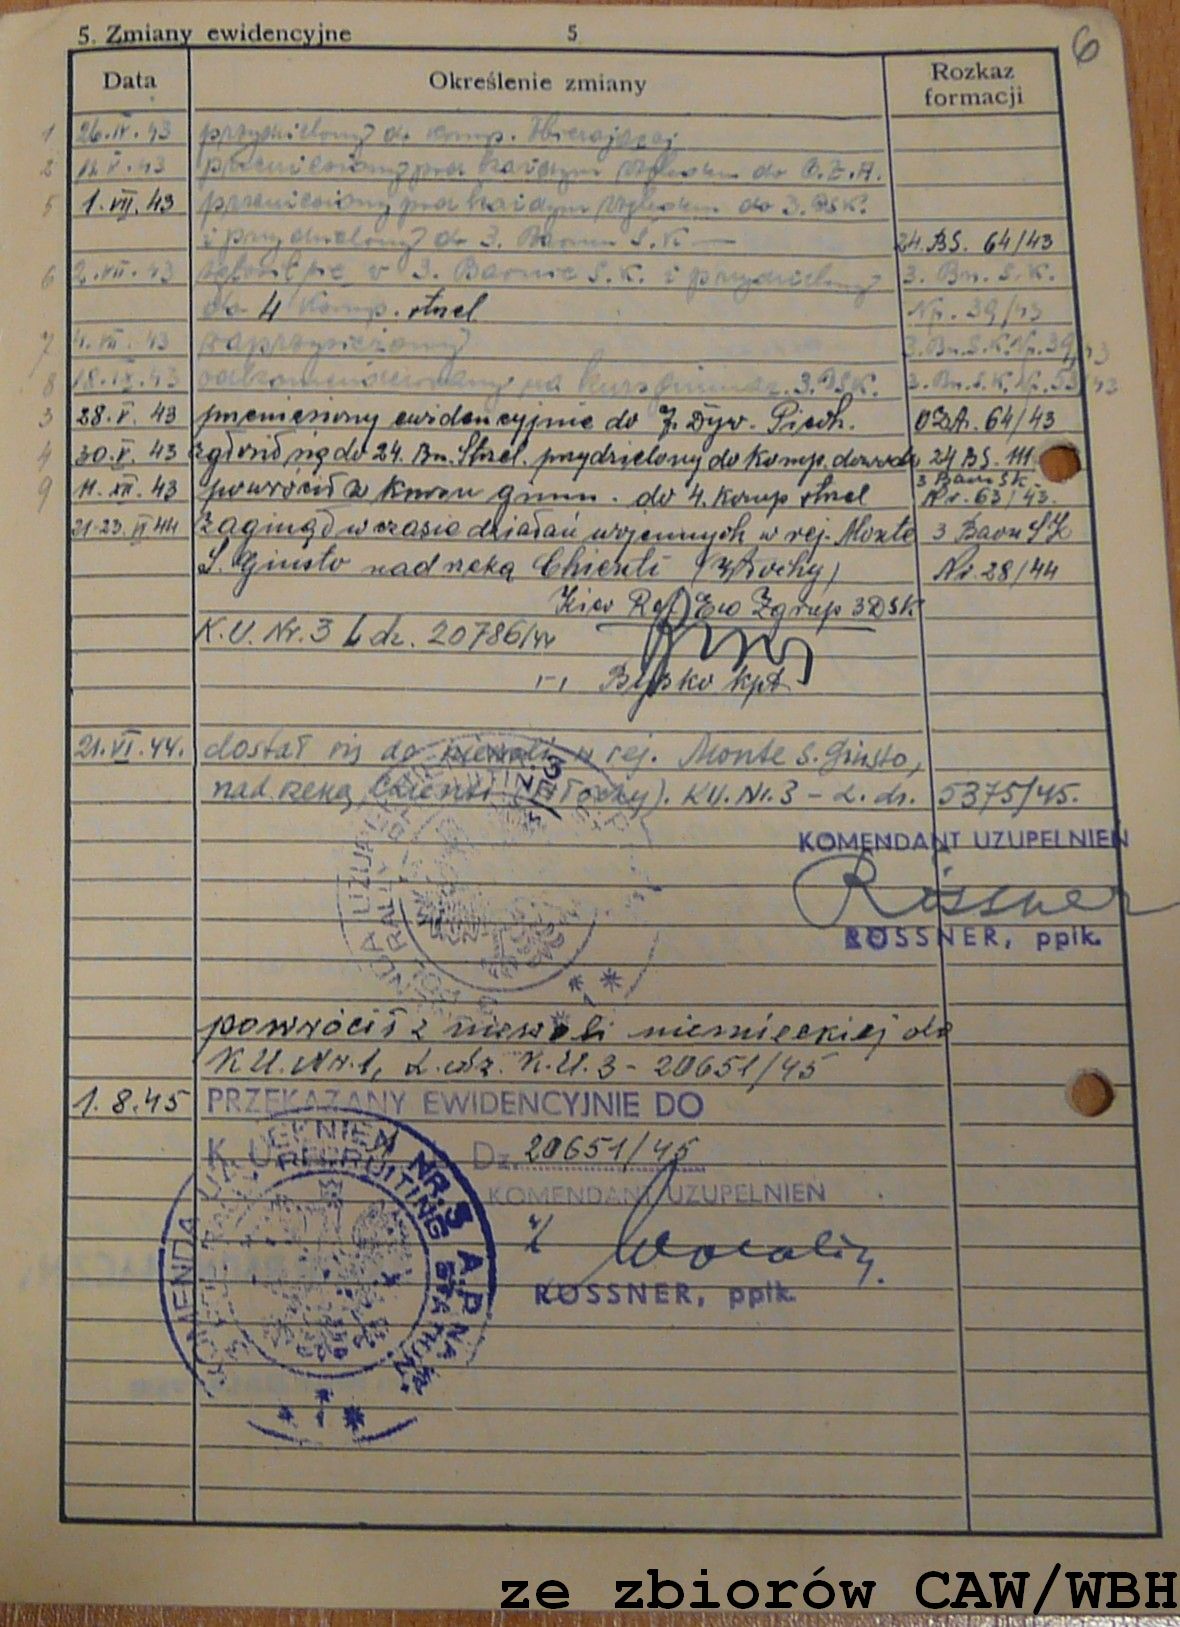 5. Zmiany ewidencyjne 5 6
Data Określenie zmiany Rozkaz formacji
1 26.IV.43 przydzielony do komp. Zbierającej
2 12.V.43 przeniesiony pod każdym względem do O.Z.A.
5 1.VII.43 przeniesiony pod każdym względem do 3. DSK.
i przydzielony do 3. Baonu S.K — 24.BS. 64/43
6 2.VII.43 zgłosił się w 3. Baonie S.K. i przydzielony 3. Bn. S.K.
do 4 komp. strzel Nr. 39/43
7 4.VII.43 zaprzysiężony 3.Bn.S.K.Nr.39/43
8 18.IX.43 odkomenderowany na kurs gimnaz. 3.DSK. 3.Bn.S.K.Nr.53/43
3 28.V.43 przeniesiony ewidencyjnie do 7. Dyw. Piech. OZA. 64/43
4 30.V.43 zgłosił się do 24. Bn. Strzel. przydzielony do komp. dowodz 24 BS. 111
9 11.XII.43 powrócił z kursu gimn. do 4. komp strzel 3 Baon SK Nr. 63/43.
21-23.VI 44 Zaginął w czasie działań wojennych w rej. Monte 3 Baon SK
S. Giusto nad rzeką Chienti (Włochy) Nr. 28/44
Kier Ref. Ew Zgrup 3DSK
K.U. Nr. 3 L dz. 20786/44
Bysko kpt
21.VI.44. dostał się do niewoli w rej. Monte S. Giusto,
nad rzeką Chienti (Włochy). KU. Nr. 3 – L. dz. 5375/45.
KOMENDANT UZUPEŁNIEŃ
Rössner
ROSSNER, ppłk.
powrócił z niewoli niemieckiej do
K.U. Nr. 1, L. dz. K.U.3 – 20651/45
1.8.45 PRZEKAZANY EWIDENCYJNIE DO
K. U. Dz. 20651/45
KOMENDANT UZUPEŁNIEŃ
ROSSNER, ppłk.
KOMENDA UZUPEŁNIEŃ NR. 3 A.P. NA
RECRUITING
1
ze zbiorów CAW/WBH